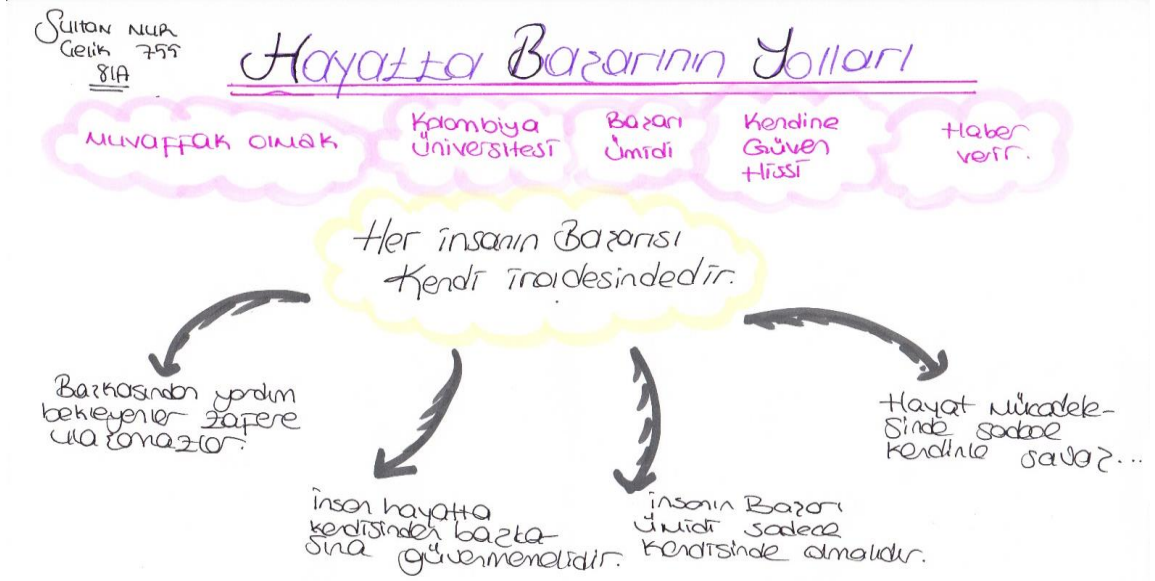 Sultan Nur
Çelik 755
8/A
Hayatta Başarının Yolları
Muvaffak olmak
Kolombiya
Üniversitesi
Başarı
Ümidi
Kendine
Güven
Hissi
Haber
verir.
Her insanın Başarısı
Kendi iradesindedir.
Başkasından yardım
bekleyenler zafere
ulaşamazlar.
İnsan hayatta
kendisinden başka-
sına güvenmemelidir.
İnsanın Başarı
Ümidi sadece
kendisinde olmalıdır.
Hayat Mücadele-
sinde sadece
kendinle savaş...